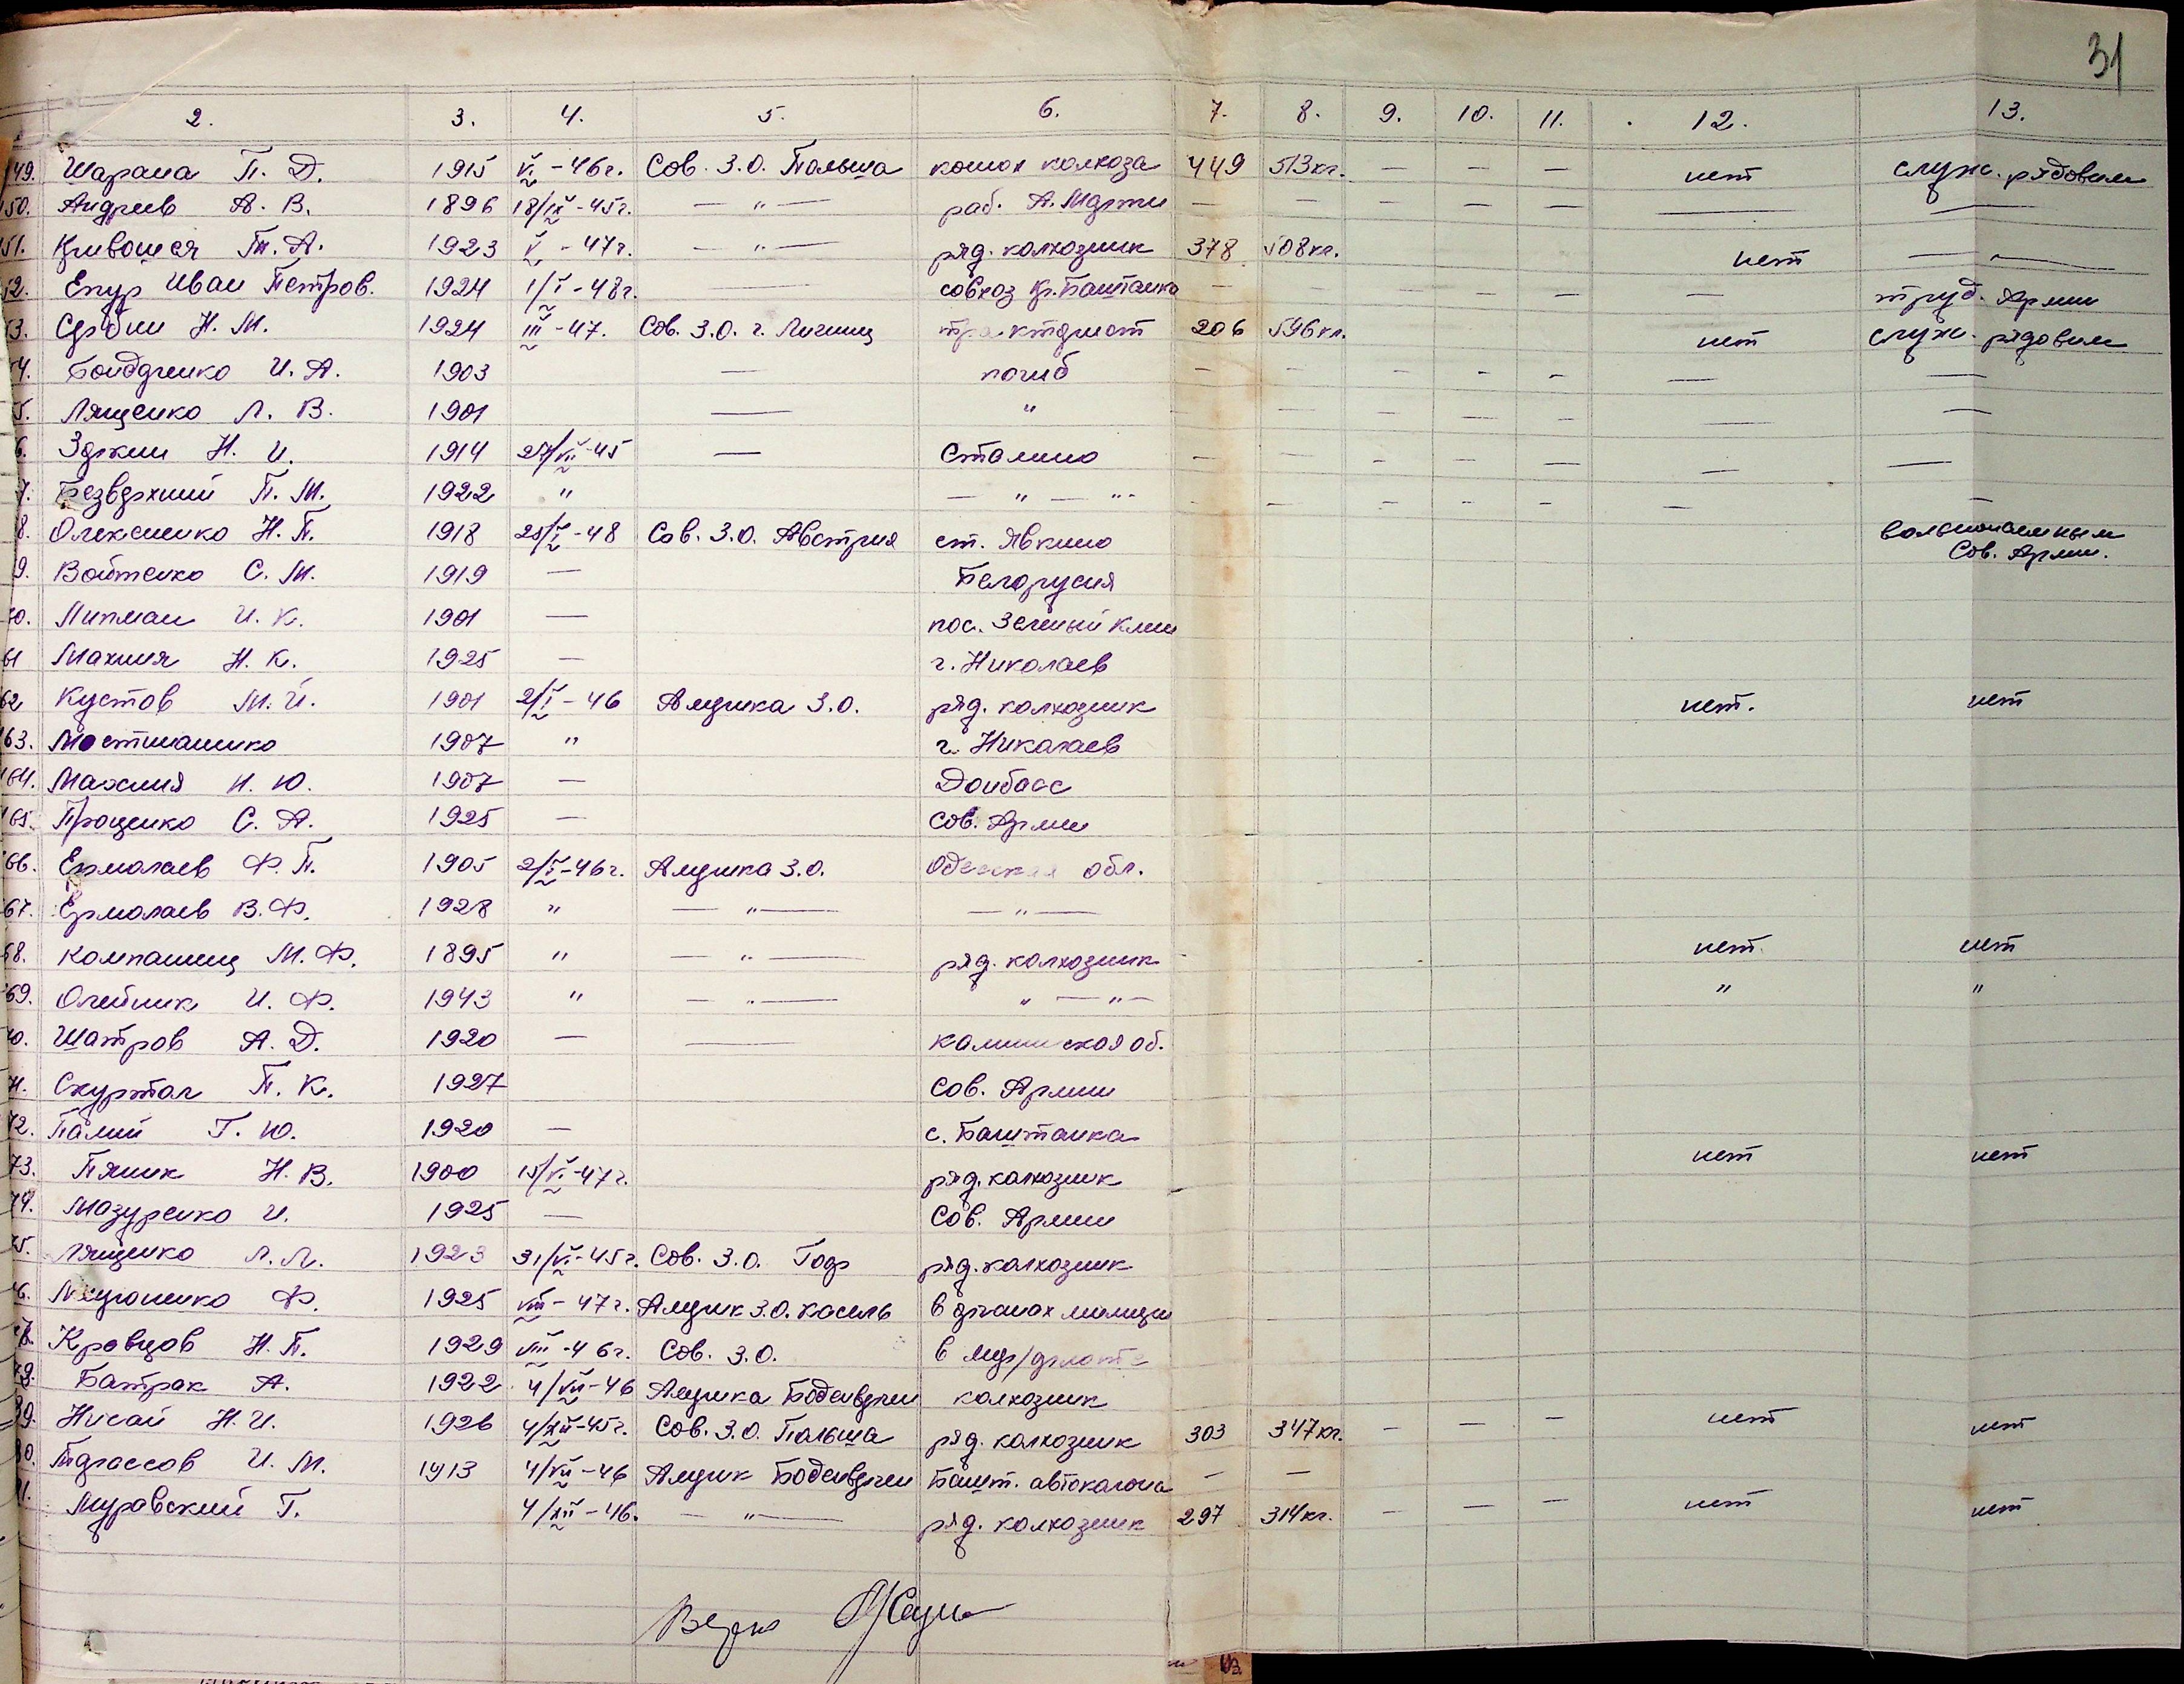 31
2. 3. 4. 5. 6. 7. 8. 9. 10. 11. 12. 13.
149. Шарапа П. Д. 1915 VI - 46 г. Сов. З.О. Польша конюх колхоза 449 513 кг. — — — нет служ. рядовым
150. Андреев А. В. 1896 18/IX - 45 г. — " — раб. А. Марти — — — — — — —
51. Кривошея Т. А. 1923 V - 47 г. — " — ряд. колхозник 378 508 кг. нет — —
52. Епур Иван Петров. 1924 1/I - 48 г. — совхоз Кр. Баштанка — — — — — — труд. Армии
53. Сербин Н. М. 1924 III - 47. Сов. З.О. г. Лигниц тракторист 206 596 кг. нет служ. рядовым
54. Бондаренко И. А. 1903 — погиб — — — — — — —
5. Лященко Л. В. 1901 — " — — — — — —
6. Зоркин Н. И. 1914 27/VII - 45 — Сталино — — — — — — —
7. Безверхний П. М. 1922 " — " — " - — — — — — —
8. Олексиенко Н. П. 1918 25/V - 48 Сов. З.О. Австрия ст. Явкино вольнонаемным
Сов. Армии.
9. Войтенко С. М. 1919 — Белорусия
60. Липман И. К. 1901 — пос. Зеленый Клин
61 Махиня Н. К. 1925 — г. Николаев
62 Кустов М. И. 1901 2/V - 46 Америка З.О. ряд. колхозник нет. нет
163. 1907 " г. Николаев
164. Махиня И. Ю. 1907 — Донбасс
165. Проценко С. А. 1925 — Сов. Армии
66. Ермолаев Ф. П. 1905 2/V - 46 г. Америка З.О. Одесская обл.
67. Ермолаев В. Ф. 1928 " — " — — " —
68. Компаниец М. Ф. 1895 " — " — ряд. колхозник нет. нет
69. Олейник И. Ф. 1943 " — " — " — " — " "
70. Шатров А. Д. 1920 — — Калининская об.
71. Скуртол П. К. 1927 Сов. Армии
72. Палий Г. Ю. 1920 — с. Баштанка
73. Пяник Н. В. 1900 15/VI - 47 г. ряд. колхозник нет нет
74. Мазуренко И. 1925 — Сов. Армии
75. Лященко Л. Л. 1923 31/VI - 45 г. Сов. З.О. ряд. колхозник
76. Ф. 1925 VIII - 47 г. Америк З.О. Касель в органах милиции
77. Кравцов Н. П. 1929 VIII - 46 г. Сов. З.О. в
78. Батрак А. 1922 4/VII - 46 Америка колхозник
79. Нисай Н. И. 1926 4/XII - 45 г. Сов. З.О. Польша ряд. колхозник 303 347 кг. — — — нет нет
80. Тарассов И. М. 1913 4/VII - 46 Америк Башт. автоколона — —
81. Муравский Г. 4/XII - 46. — " — ряд. колхозник 297 314 кг. — — — нет нет
Верно